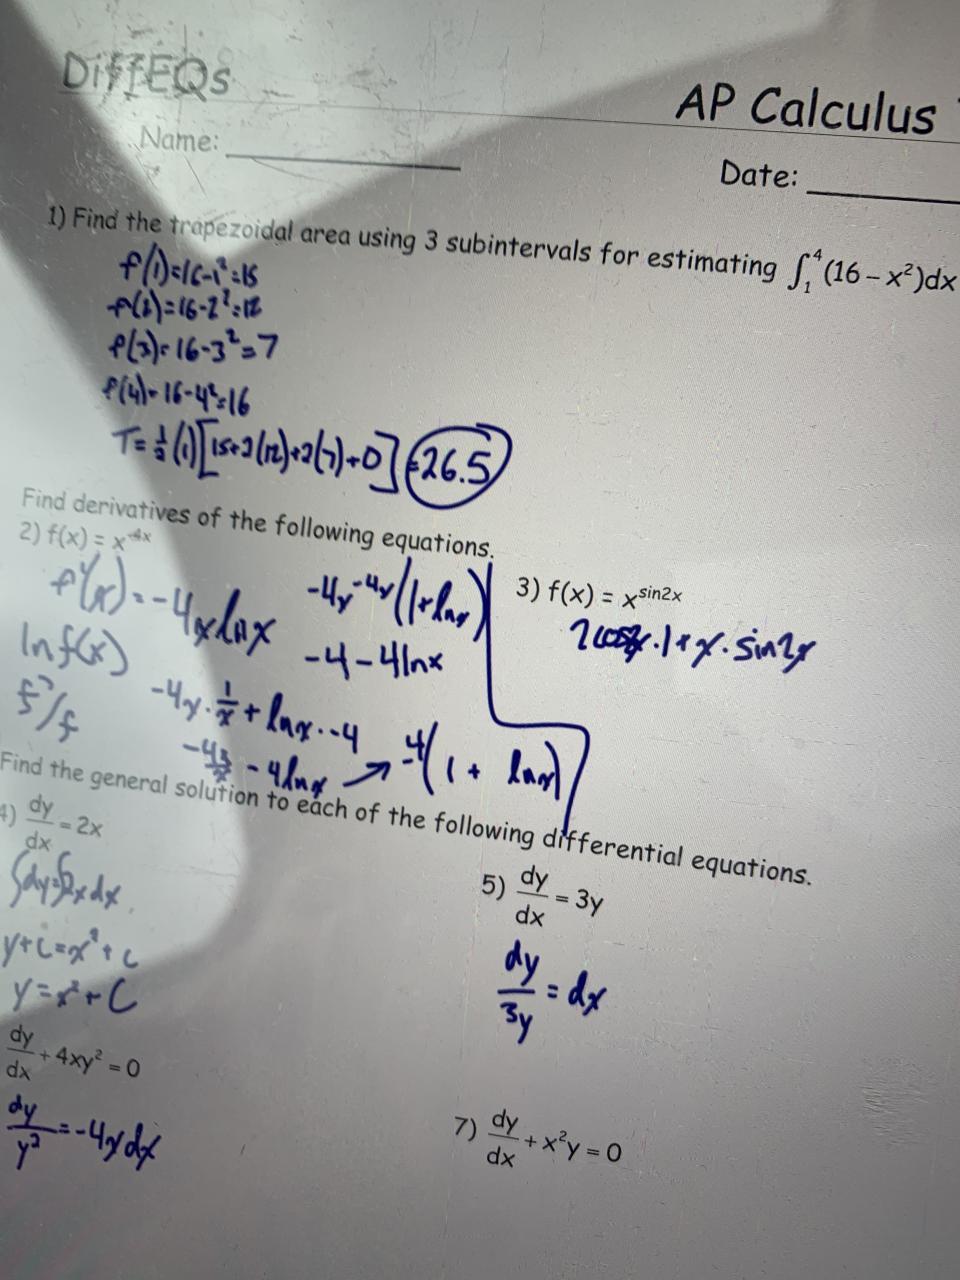 DiffEQs
AP Calculus
Name:
Date:
1) Find the trapezoidal area using 3 subintervals for estimating ∫₁⁴(16 – x²)dx
f(1)=16-1²=15
f(2)=16-2²=12
f(3)=16-3²=7
f(4)=16-4²=16
T=½(1)[15+2(12)+2(7)+0]=26.5
Find derivatives of the following equations.
2) f(x) = x⁻⁴ˣ
f'(x)=-4xlnx
-4x⁻⁴ˣ(1+lnx)
-4-4lnx
ln f(x)
f'/f
-4x·1/x+lnx·-4
-4x/x-4lnx→-4(1+lnx)
3) f(x) = x^sin2x
2cos2x·1+x·sin2x
Find the general solution to each of the following differential equations.
4) dy/dx = 2x
∫dy=∫2xdx
y+C=x²+C
y=x²+C
5) dy/dx = 3y
dy/3y = dx
dy/dx + 4xy² = 0
dy/y² = -4xdx
7) dy/dx + x²y = 0